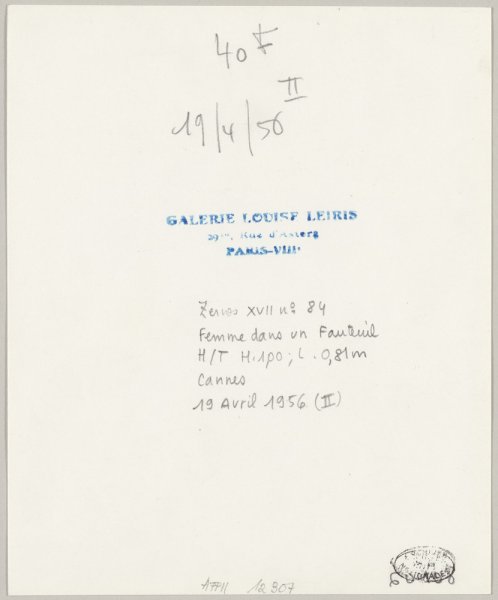 40 F
II
19/4/56
GALERIE LOUISE LEIRIS
29bis, Rue d'Astorg
PARIS-VIIIe
Zervos XVII nº 84
Femme dans un Fauteuil
H/T H. 1,00 ; L. 0,81 m
Cannes
19 Avril 1956 (II)
12307